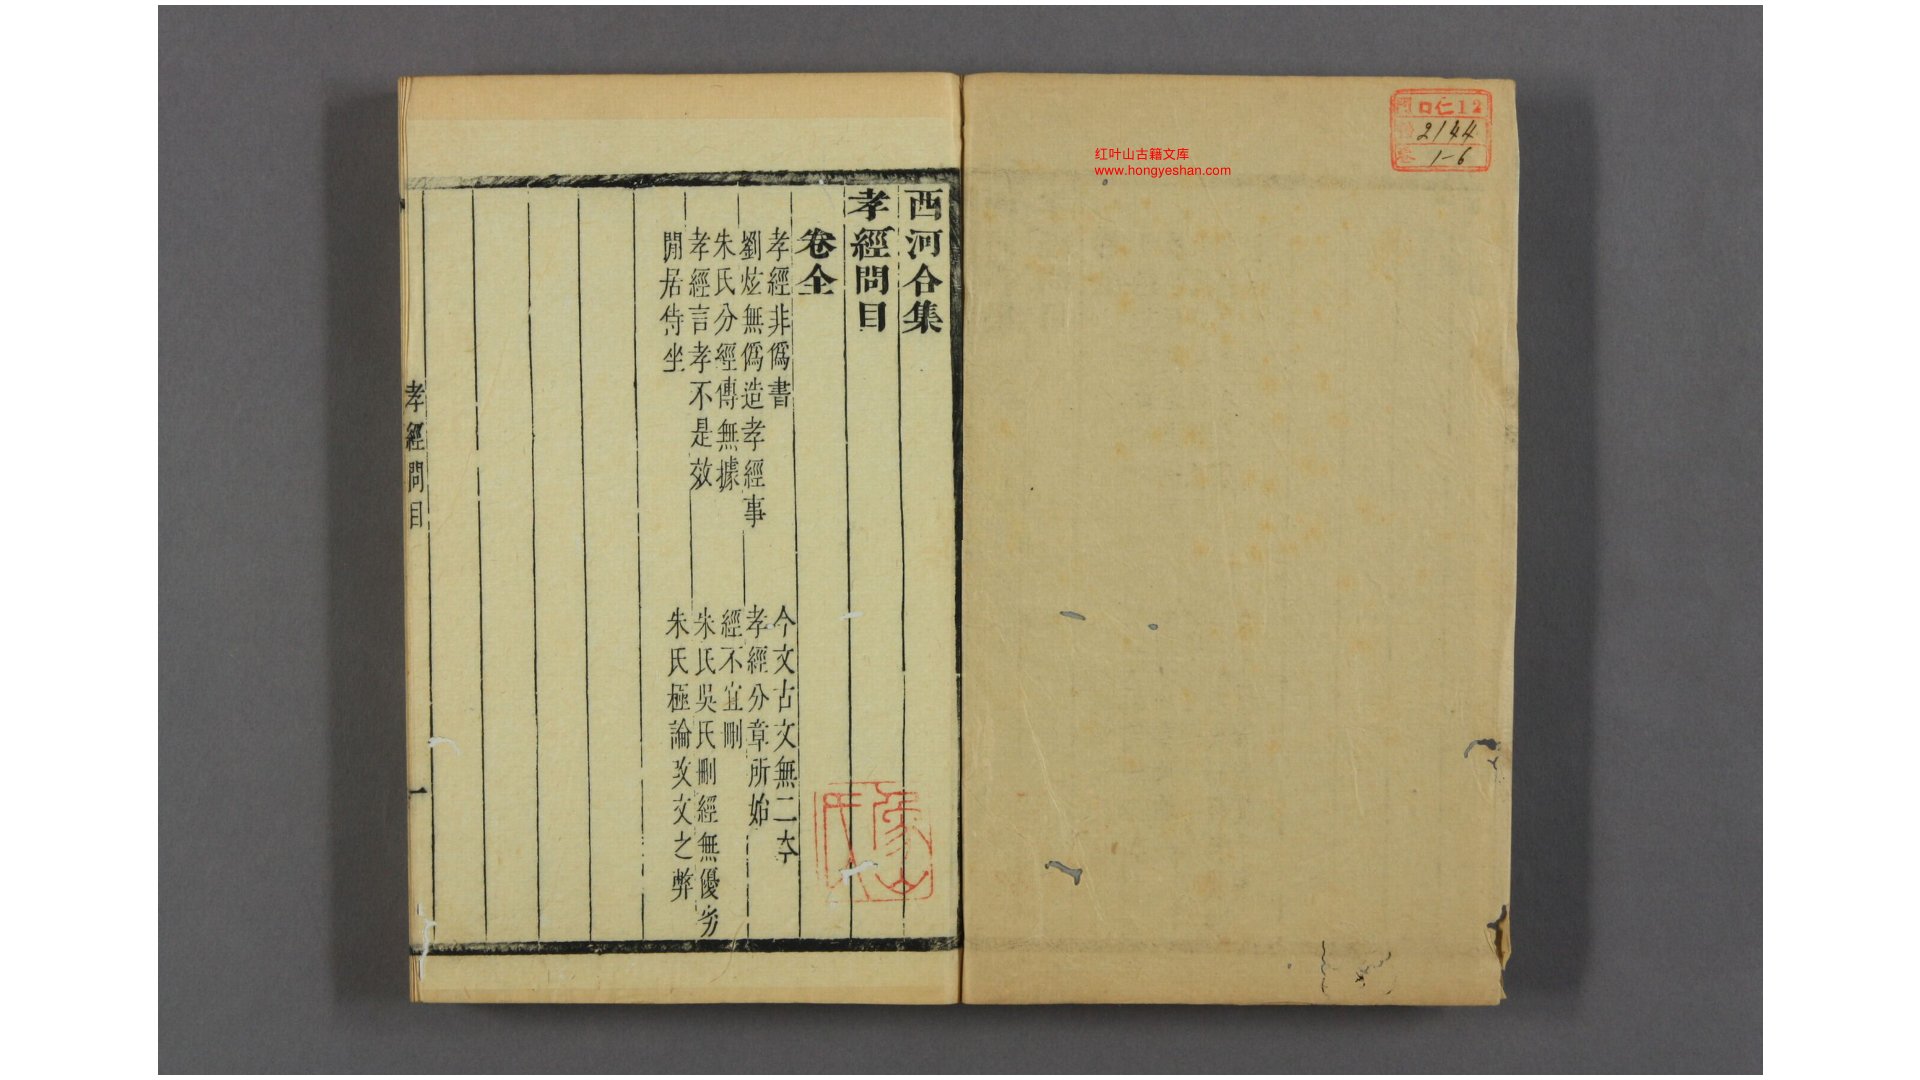 口仁12
2144
1-6
红叶山古籍文库
www.hongyeshan.com
西河合集
孝經問目
卷全
孝經非僞書
今文古文無二本
劉炫無僞造孝經事
孝經分章所始
朱氏分經傳無據
經不宜刪
孝經言孝不是效
朱氏吳氏刪經無優劣
閒居侍坐
朱氏極論改文之弊
孝經問目
一